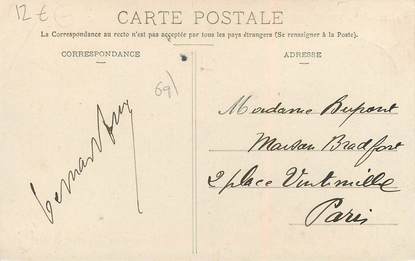 12 €
CARTE POSTALE
La Correspondance au recto n'est pas acceptée par tous les pays étrangers (Se renseigner à la Poste).
CORRESPONDANCE
ADRESSE
69
Madame Dupont
Maison Bradfort
2 place Vintimille
Paris